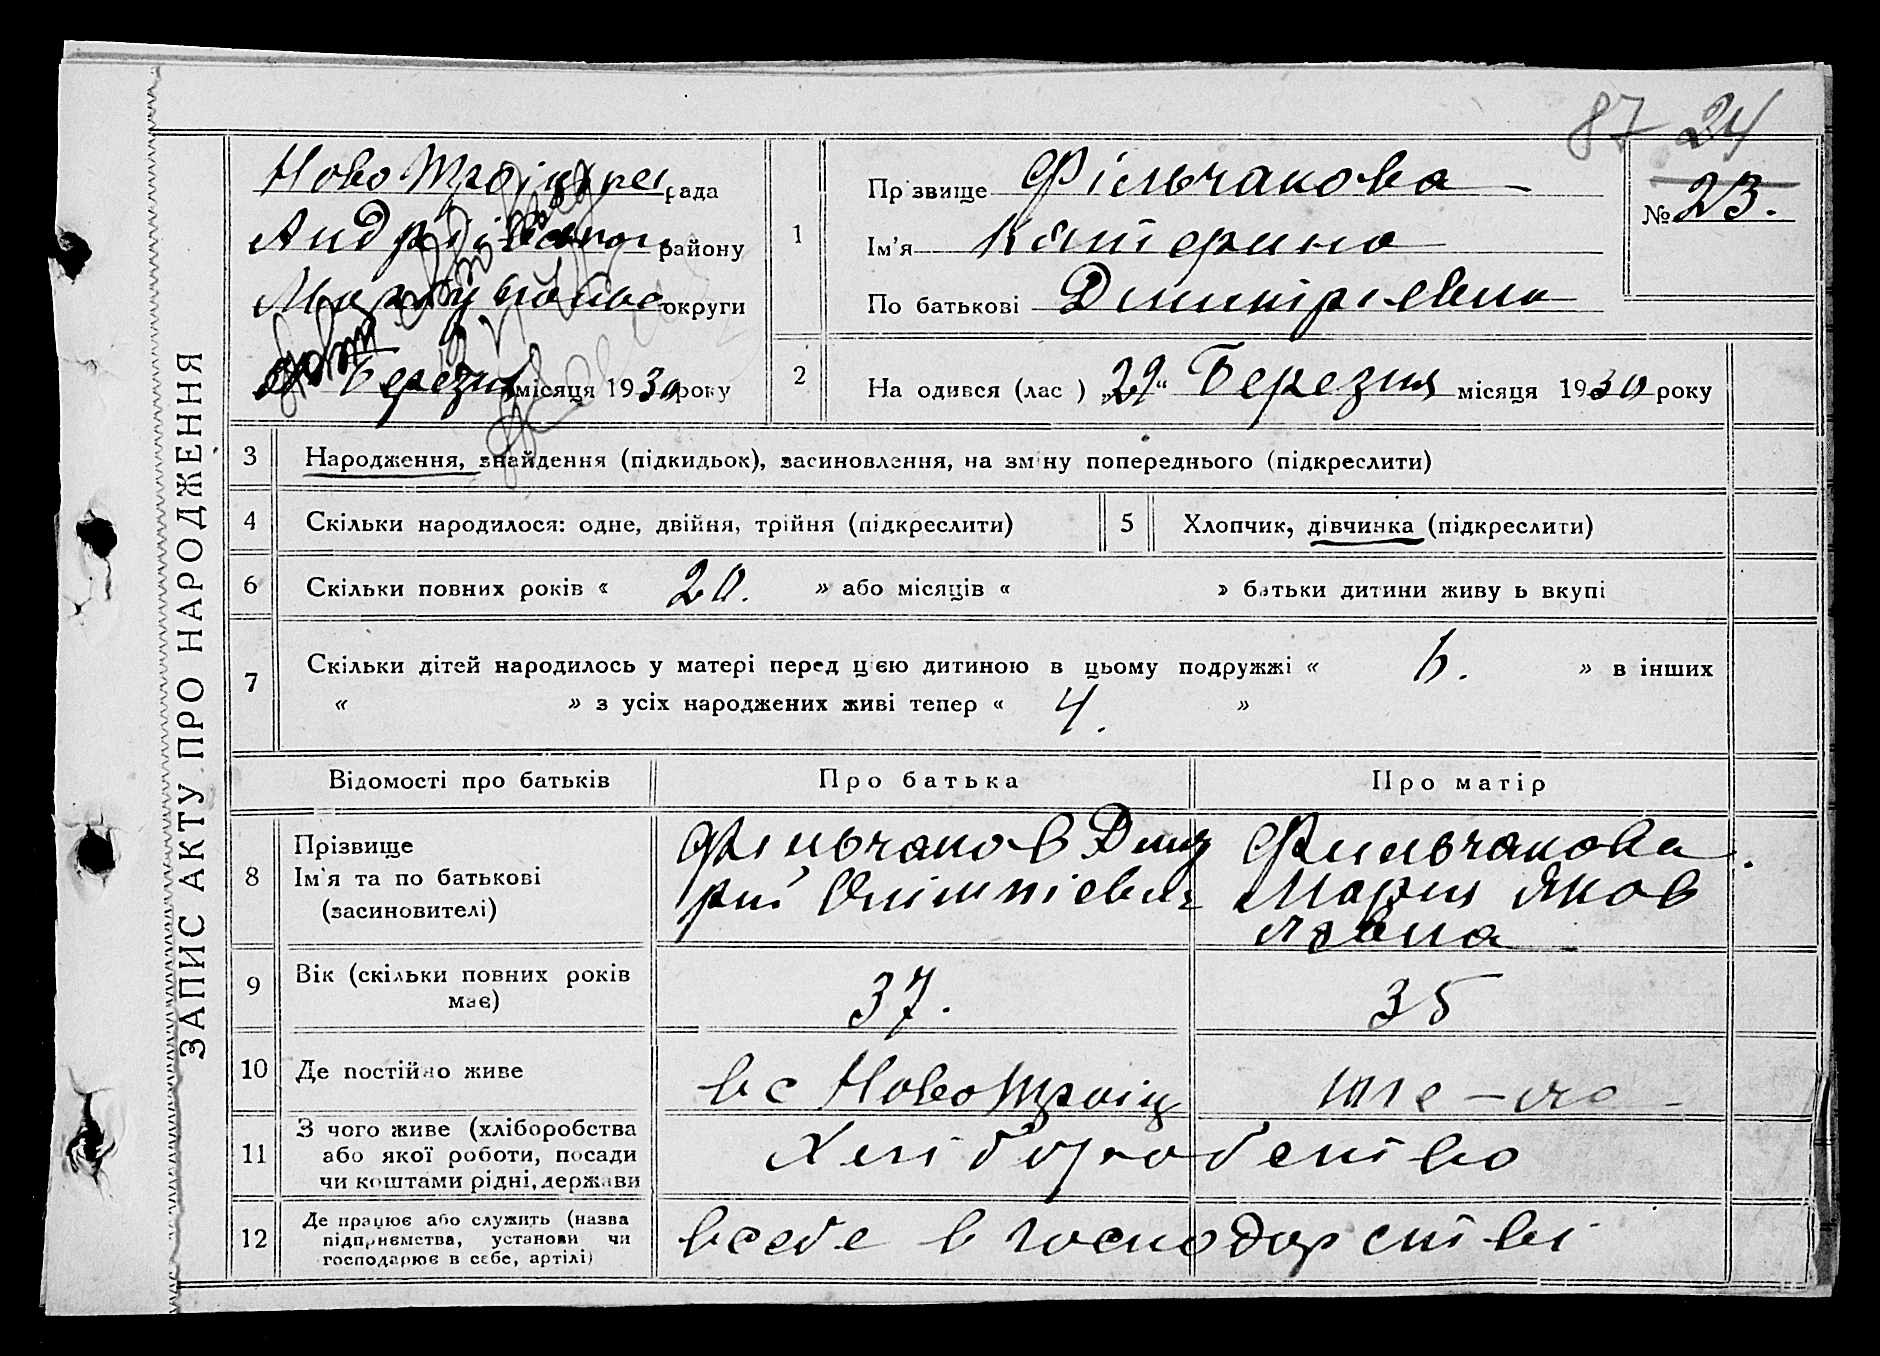 87 24
ЗАПИС АКТУ ПРО НАРОДЖЕННЯ
Ново Троіцкрел рада
району
округи
Березня місяця 1930 року
1
Прізвище Фільчакова
Ім'я Катерина
По батькові Димитріевна
№ 23.
2
На одився (лас ) „29“ Березня місяця 1930 року
3 Народження, знайдення (підкидьок), засиновлення, на зміну попереднього (підкреслити)
4 Скільки народилося: одне, двійня, трійня (підкреслити) 5 Хлопчик, дівчинка (підкреслити)
6 Скільки повних років « 20. » або місяців « » батьки дитини живу ь вкупі
7 Скільки дітей народилось у матері перед цією дитиною в цьому подружжі « 6. » в інших
« » з усіх народжених живі тепер « 4. »
Відомості про батьків Про батька Про матір
8 Прізвище
Ім'я та по батькові
(засиновителі)
Фільчаков Дмит
рий
Фильчакова
Мария Яков
лвена
9 Вік (скільки повних років
має)
37. 35
10 Де постійно живе вс НовоТроіц та-ма
11 З чого живе (хліборобства
або якої роботи, посади
чи коштами рідні, держави
Хліборобство
12 Де працює або служить (назва
підприємства, установи чи
господарює в себе, артілі)
всебе в господарстві